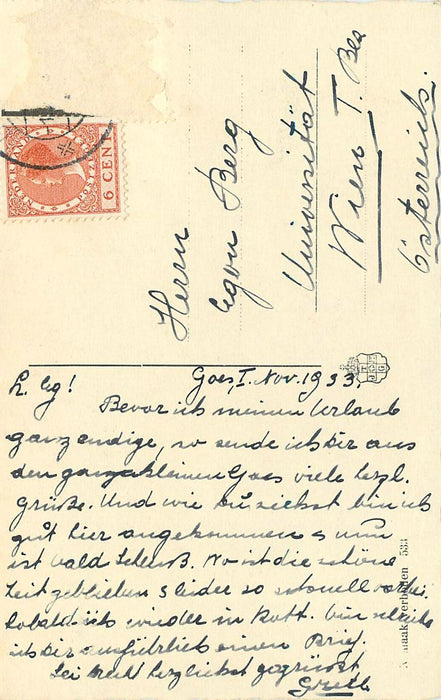 NEDERLAND
6 CENT
Herrn
Egon Berg
Universität
Wien I.
Österreich.
Goes, I. Nov. 1933.
L. Eg!
Bevor ich meinen Urlaub
ganz endige, so sende ich Dir aus
den ganz kleinen Goes viele herzl.
Grüße. Und wie Du siehst bin ich
gut hier angekommen & nun
ist bald Schluß. Wo ist die schöne
Zeit geblieben & leider so schnell vorbei.
Sobald ich wieder in Rott. bin schreibe
ich Dir ausführlich einen Brief.
Sei recht herzlichst gegrüßt
Grete
Namaak verboden 533